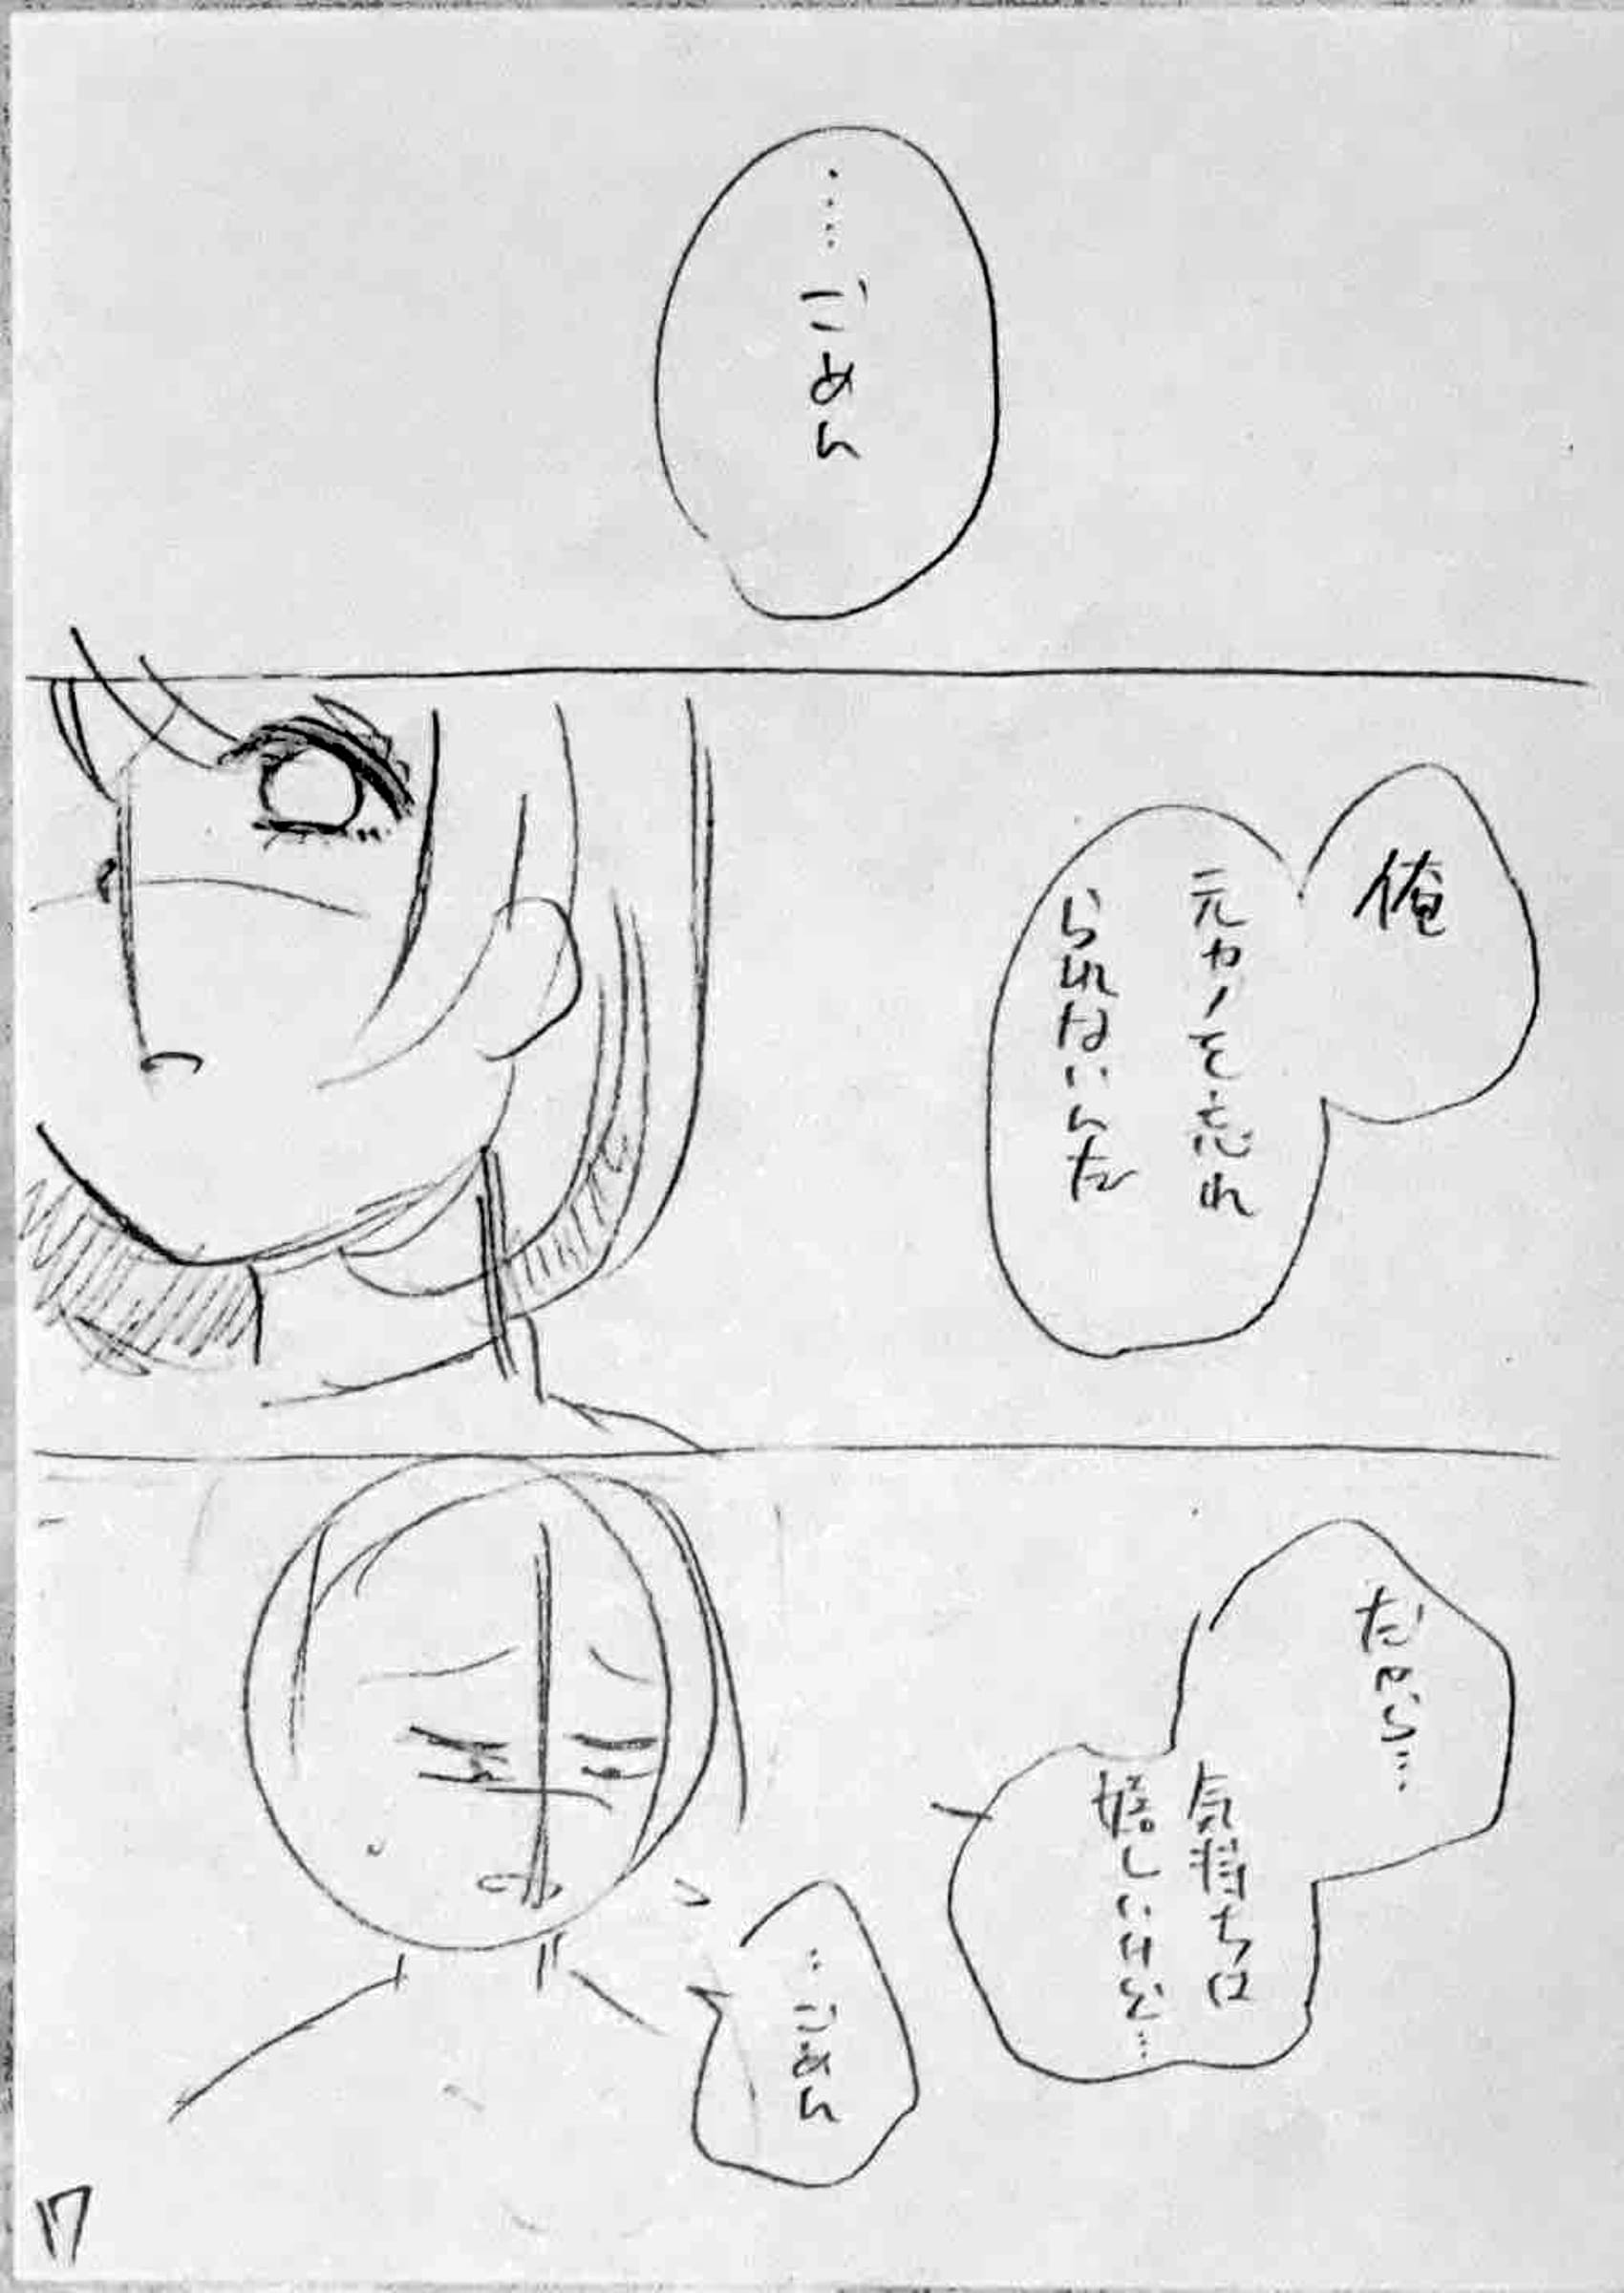 ……ごめん
俺
元カノを忘れ
られないんだ
だから…
気持ちは
嬉しいけど…
…ごめん
17